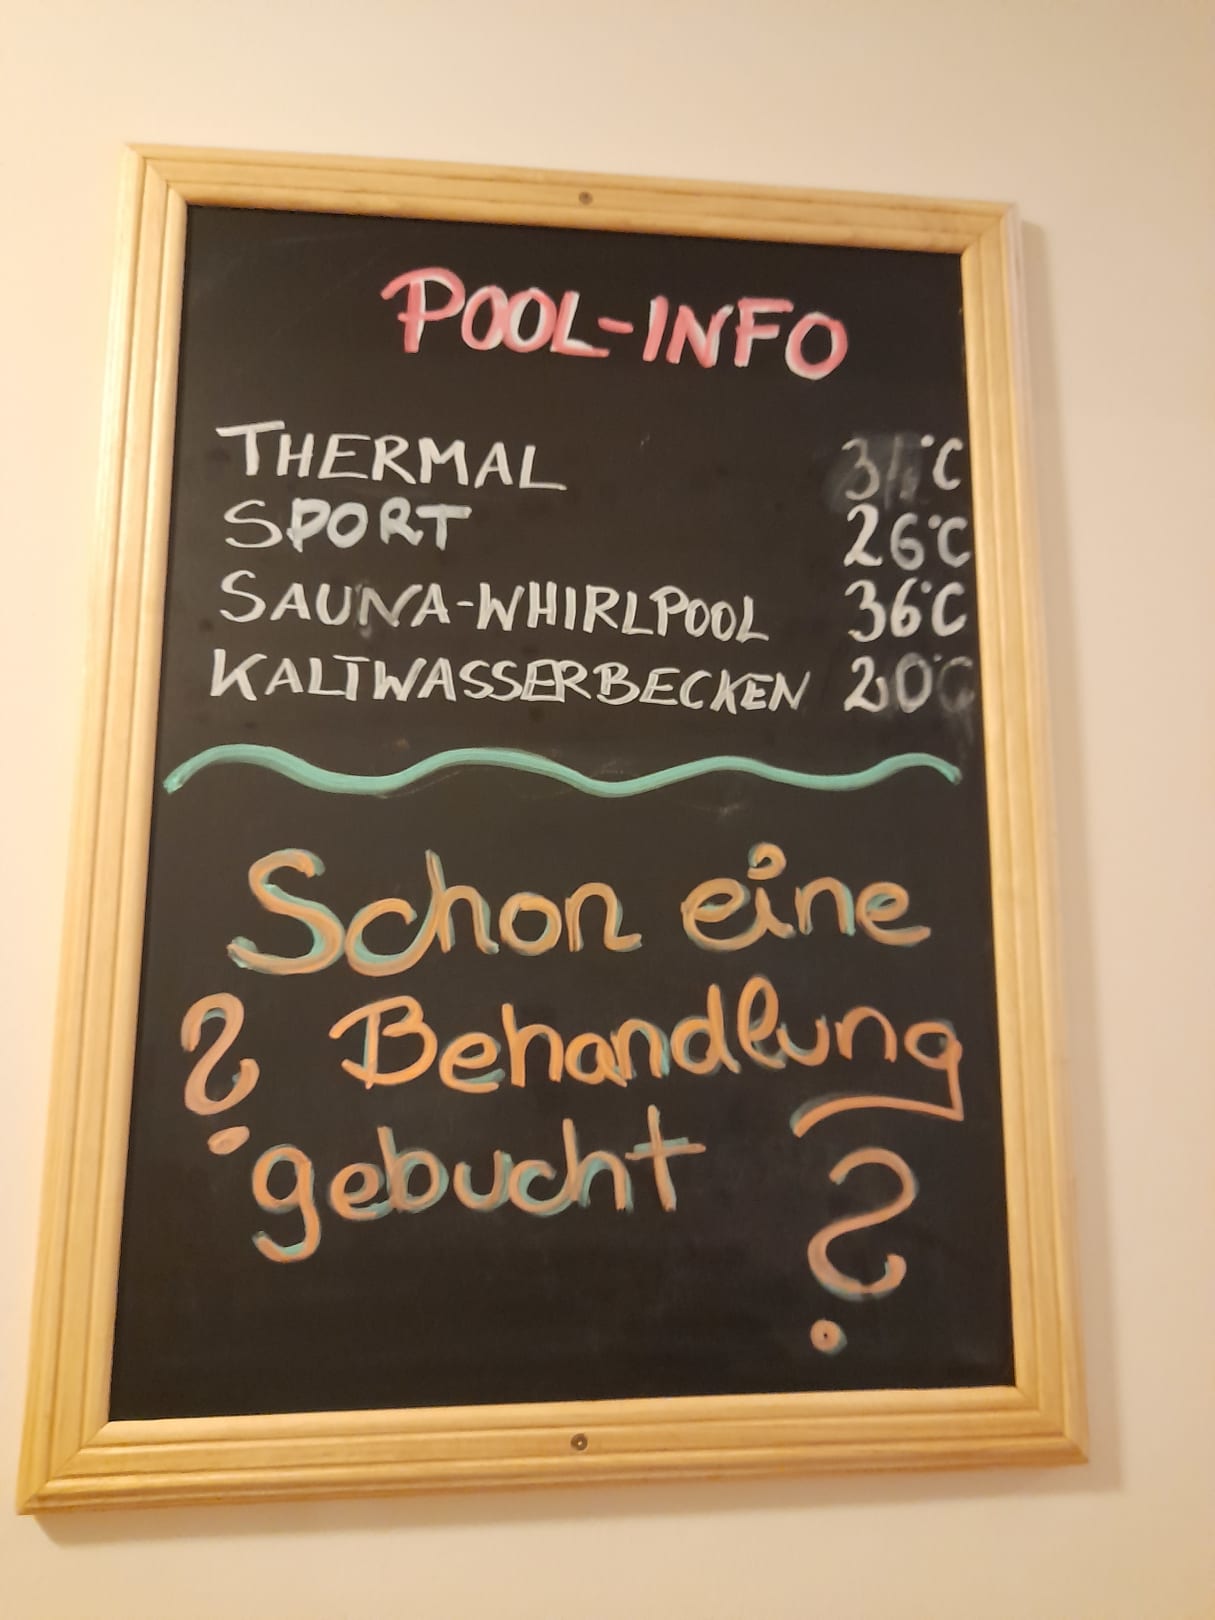 POOL-INFO
THERMAL °C
SPORT 26°C
SAUNA-WHIRLPOOL 36°C
KALTWASSERBECKEN 20°C
Schon eine
? Behandlung
gebucht ?